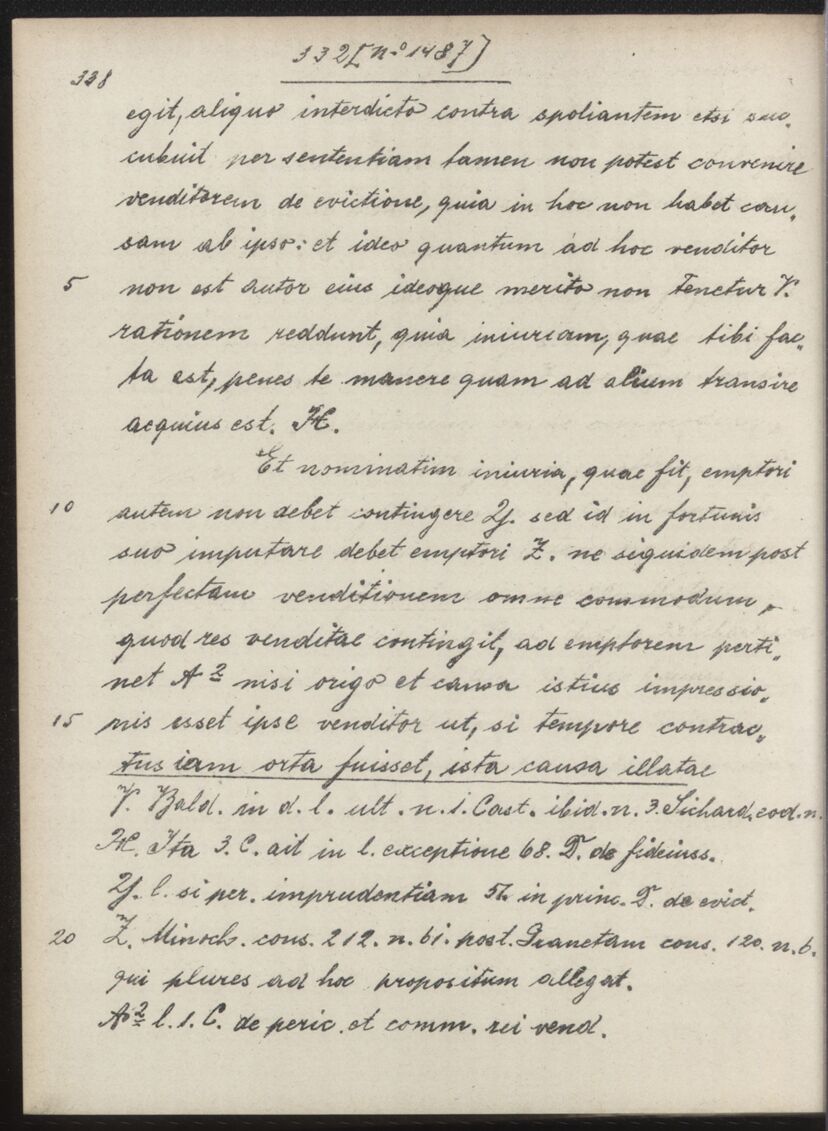 332 [No 1487]
338
egit, aliquo interdicto contra spoliantem etsi suc„
cubuit per sententiam tamen non potest convenire
venditorem de evictione, quia in hoc non habet cau„
sam ab ipso: et ideo quantum ad hoc venditor
5 non est autor eius ideoque merito non tenetur V.
rationem reddunt, quia iniuriam, quae tibi fac„
ta est, penes te manere quam ad alium transire
aequius est. H.
Et nominatim iniuria, quae fit, emptori
10 autem non debet contingere Y. sed id in fortunis
suo imputare debet emptori Z. ne siquidem post
perfectam venditionem omne commodum,
quod res venditae contingit, ad emptorem perti„
net A2 nisi origo et causa istius impressio„
15 nis esset ipse venditor ut, si tempore contrac„
tus iam orta fuisset, ista causa illatae
V. Bald. in d. l. ult. n. 1. Cast. ibid. n. 3. Sichard. eod. n.
H. Ita 3. C. ait in l. exceptione 68. D. de fideiuss.
Y. l. si per. imprudentiam 51. in princ. D. de evict.
20 Z. Minoch. cons. 212. n. 61. post. Granetam cons. 120. n. 6.
qui plures ad hoc propositum allegat.
A2 l. 1. C. de peric. et comm. rei vend.